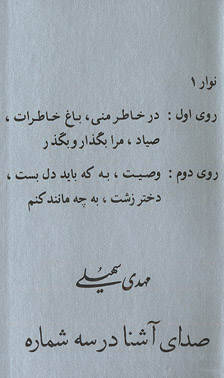 نوار ۱
روی اول : در خاطر منی ، باغ خاطرات ،
صیاد ، مرا بگذار و بگذر
روی دوم : وصیت ، به که باید دل بست ،
دختر زشت ، به چه مانند کنم
مهدی سهیلی
صدای آشنا در سه شماره